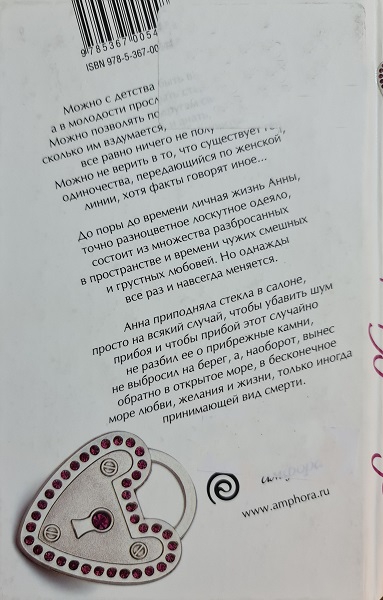 9 785367 0054
ISBN 978-5-367-00
Можно с детства
а в молодости
Можно позволять
сколько им вздумается,
все равно ничего не
Можно не верить в то, что существует
одиночества, передающийся по женской
линии, хотя факты говорят иное...
До поры до времени личная жизнь Анны,
точно разноцветное лоскутное одеяло,
состоит из множества разбросанных
в пространстве и времени чужих смешных
и грустных любовей. Но однажды
все раз и навсегда меняется.
Анна приподняла стекла в салоне,
просто на всякий случай, чтобы убавить шум
прибоя и чтобы прибой этот случайно
не разбил ее о прибрежные камни,
не выбросил на берег, а, наоборот, вынес
обратно в открытое море, в бесконечное
море любви, желания и жизни, только иногда
принимающей вид смерти.
амфора
www.amphora.ru